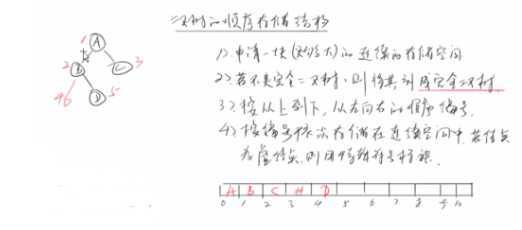 二叉树的顺序存储结构
1 A
2 B C 3
46 D 5
1>.申请一块(足够大)的连续的存储空间
2>.若不是完全二叉树,则将其补成完全二叉树
3>按从上到下,从左向右的顺序编号.
4>按编号依次存储在连续空间中,若结点
为虚结点,则用特殊符号标识.
A B C # D
0 1 2 3 4 5 6 7 8 9 10